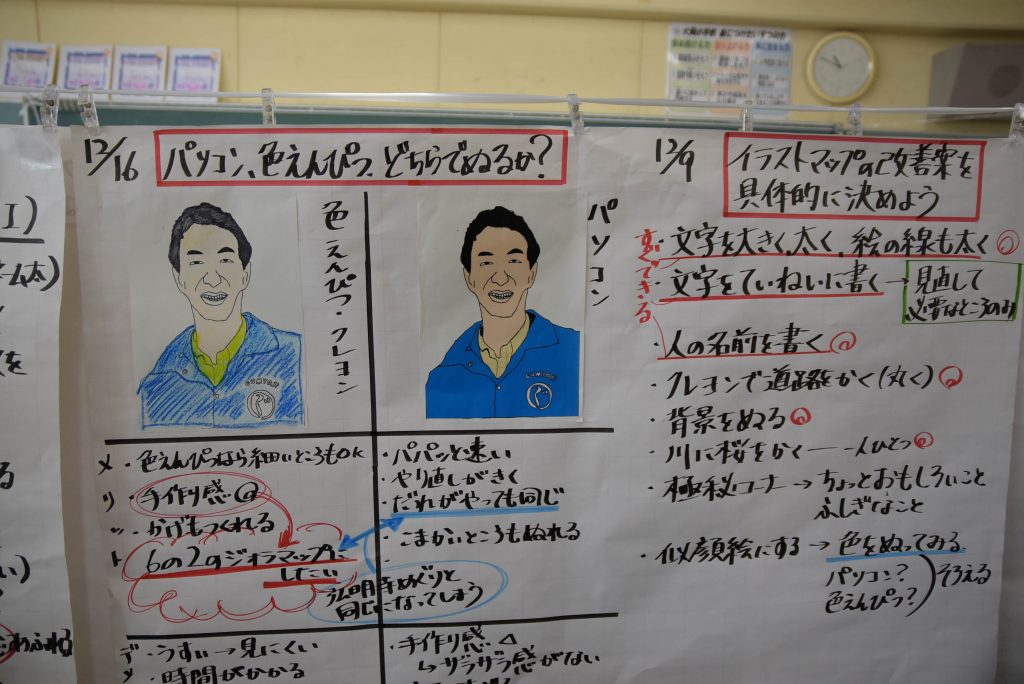 12/16
パソコン、色えんぴつ、どちらでぬるか?
色えんぴつ・クレヨン
パソコン
メリット
・色えんぴつなら細いところもOK
・手作り感◎
・かげもつくれる
6の2のジオラマップに
したい
・パパッと速い
・やり直しがきく
・だれがやっても同じ
・こまかいところもぬれる
同じになってしまう
デメ
・うすい→見にくい
・時間がかかる
・手作り感△
ザラザラ感がない
12/9
イラストマップの改善案を
具体的に決めよう
すぐできる
・文字を大きく、太く、絵の線も太く
・文字をていねいに書く→見直して
必要なところのみ
・人の名前を書く
・クレヨンで道路をかく(丸く)
・背景をぬる
・川に桜をかく――一人ひとつ
・極秘コーナー→ちょっとおもしろいこと
ふしぎなこと
・似顔絵にする→色をぬってみる
パソコン?
色えんぴつ?
そろえる